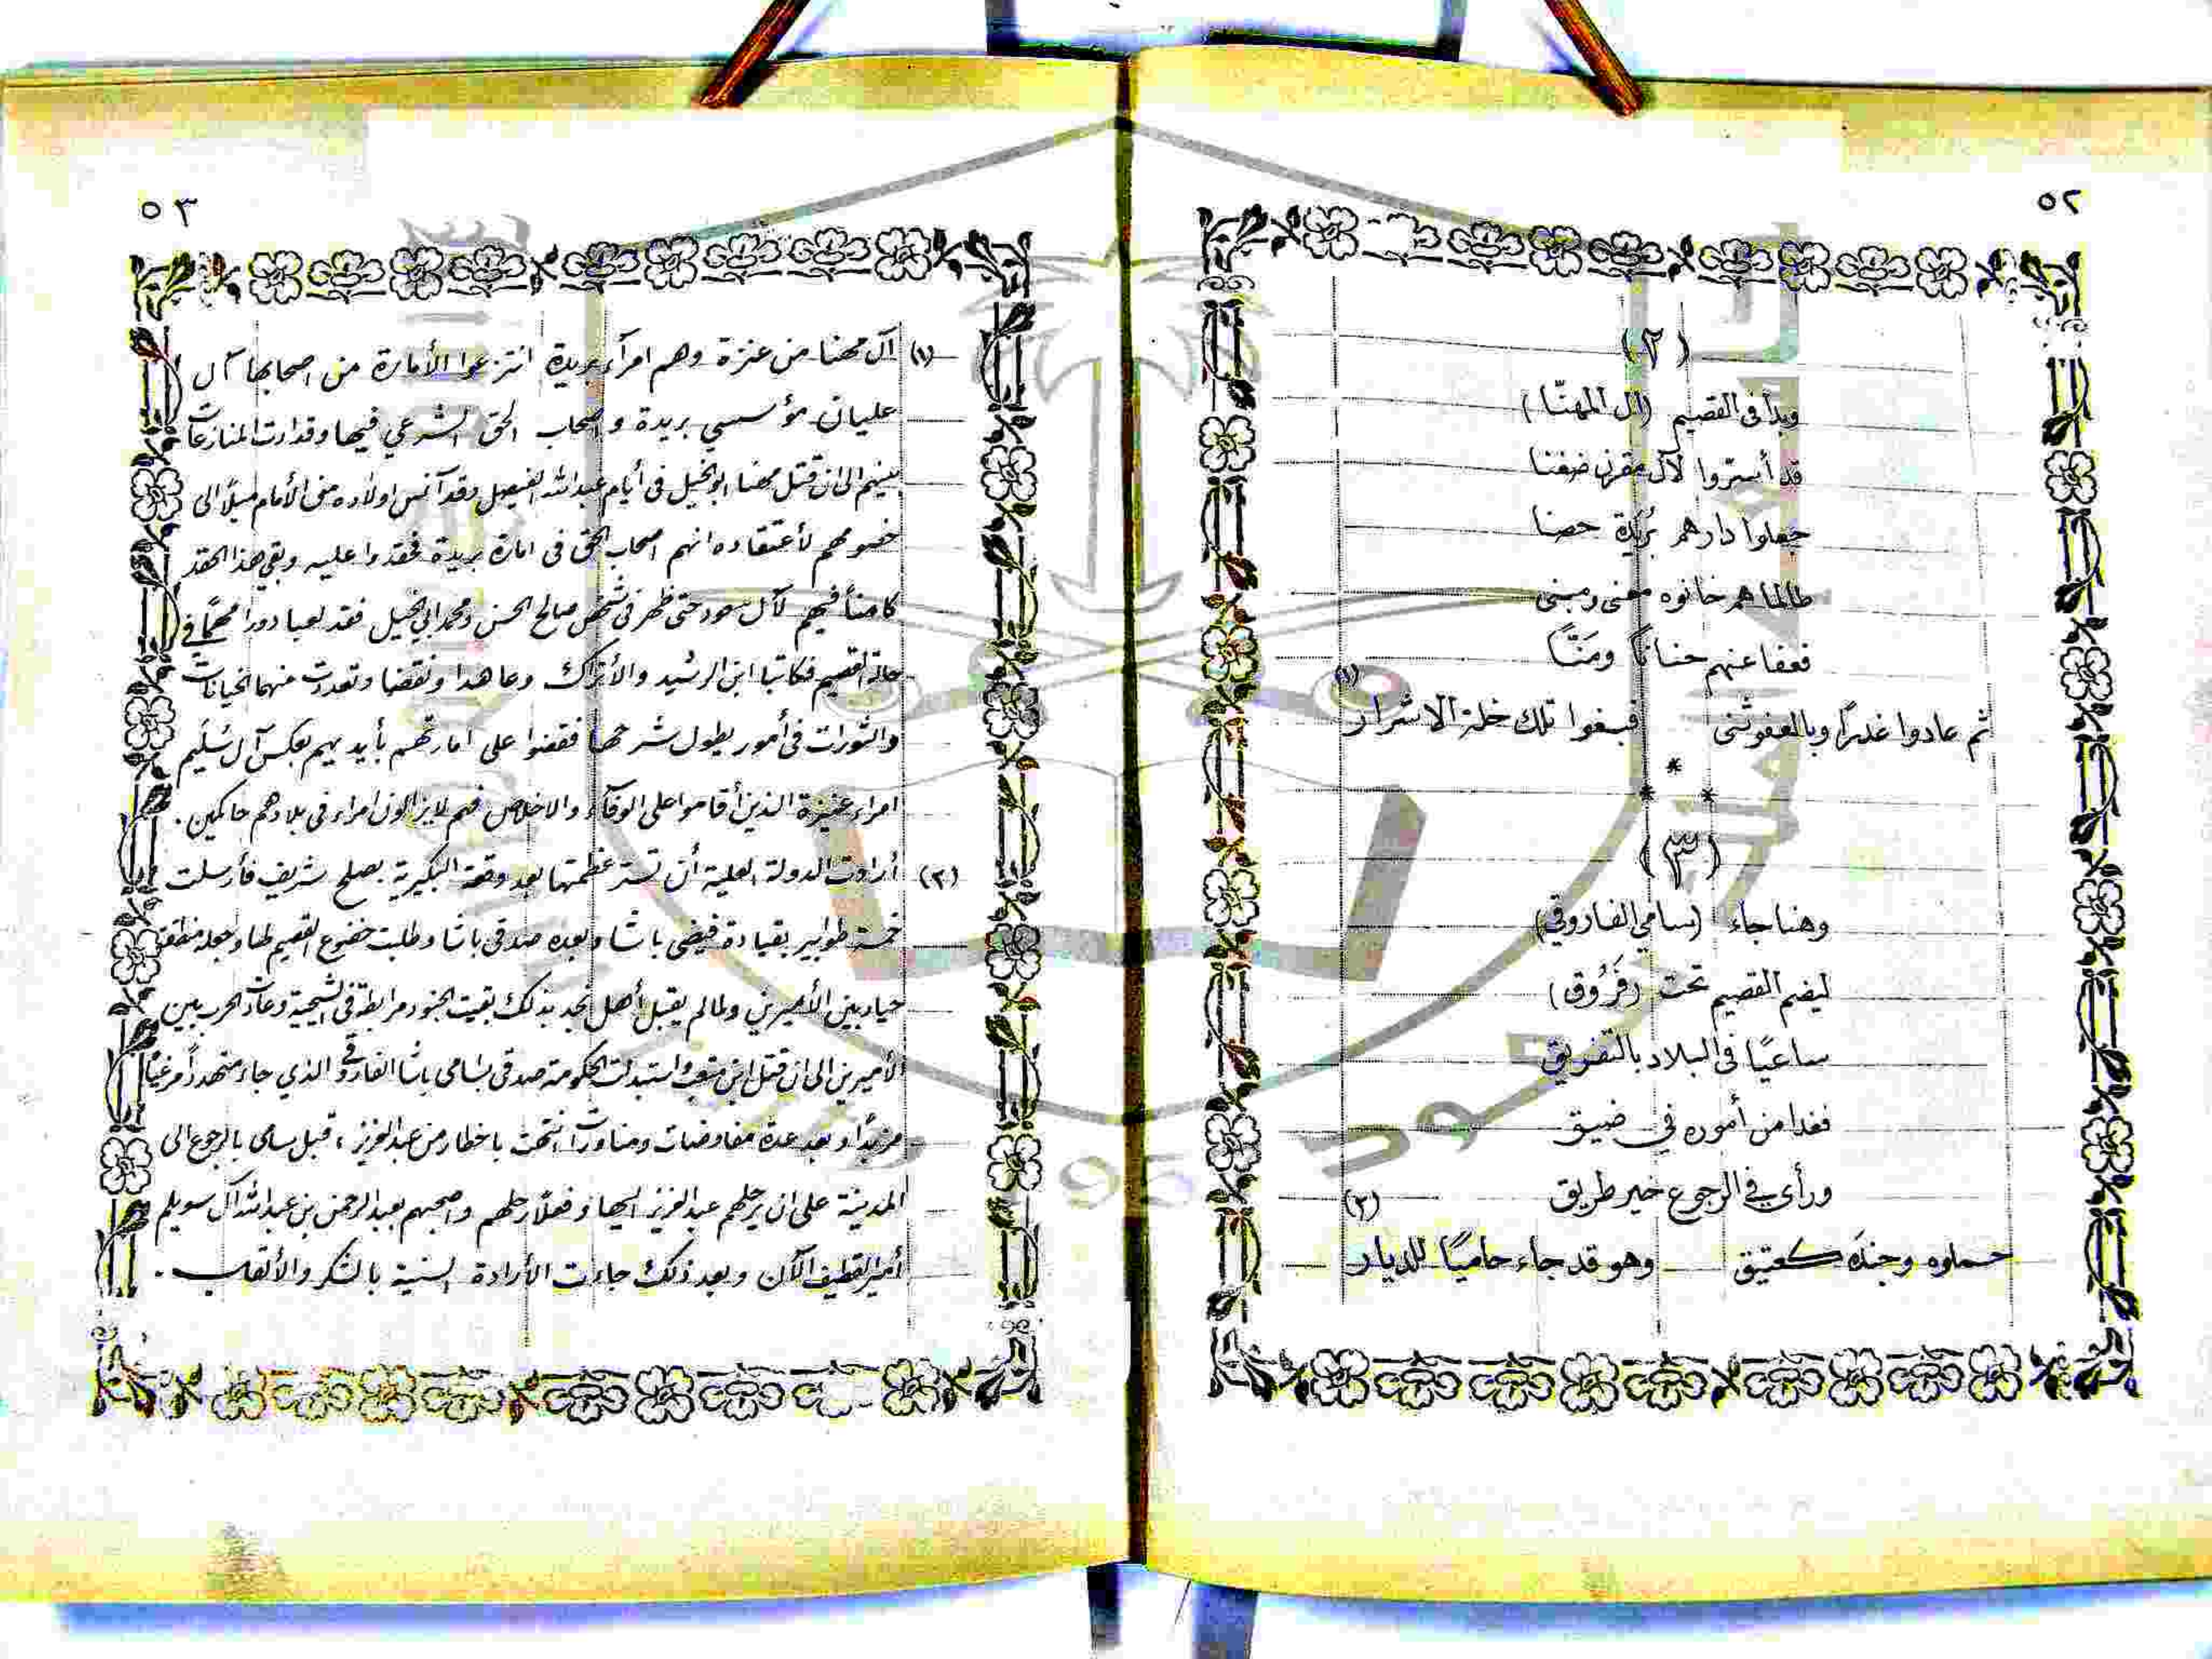 ٥٢
(٢)
وبدا فى القصيم (آل المهنّا)
قد أسرّوا لآل مقرن ضغنا
جعلوا دارهم بُرَيدة حصنا
طالما هم خانوه معنى ومبنى
فعفا عنهم حنانًا ومَنّاً
ثم عادوا غدرًا وبالعفو ثنى فبغوا تلك خلة الاشرار (١)
*
* *
(٣)
وهنا جاء (سامي الفاروقي)
ليضم القصيم تحت (فَرُوق)
ساعيًا فى البلاد بالتفريق
فغدا من أموره في ضيق
ورأى في الرجوع خير طريق (٢)
حملوه وجندَه كعتيق وهو قد جاء حاميًا للديار
٥٣
(١) آل مهنا من عنزة وهم امرآء بريدة انتزعوا الأمارة من اصحابها آل
عليان مؤسسي بريدة واصحاب الحق الشرعي فيها وقد ادت المنازعات
بينهم الى ان قتل مهنا ابو الخيل فى أيام عبد الله الفيصل وقد آنس اولاده من الأمام ميلاً الى
خصومهم لأعتقاده انهم اصحاب الحق فى امارة بريدة فحقدوا عليه وبقي هذا الحقد
كامناً فيهم لآل سعود حتى ظهر فى شخص صالح الحسن ومحمد ابي الخيل فقد لعبا دورا مهمًا في
حالة القصيم فكاتبا ابن الرشيد والأتراك وعاهدا ونقضا وتعددت منهما الخيانات
والثورات فى أمور يطول شرحها فقضوا على امارتهم بأيديهم بعكس آل سُلَيم
امراء عنيزة الذين أقاموا على الوفآء والاخلاص فهم لا يزالون امراء فى بلادهم حاكمين .
(٢) أرادت الدولة العلية أن تستر عظمتها بعد وقعة البكيرية بصلح شريف فأرسلت
خمسة طوابير بقيادة فيضي باشا وبعده صدقي باشا وطلبت خضوع القصيم لها وجعله منطقة
حياد بين الأميرين ولما لم يقبل أهل نجد بذلك بقيت الجنود مرابطة فى الشيحية وعادت الحرب بين
الأميرين الى ان قتل ابن متعب واستبدلت الحكومة صدقي بسامي باشا الفاروقي الذي جاء متهددا مرغيًا
مزبدًا وبعد عدة مفاوضات ومناورات انتهت باخطار من عبد العزيز ، قبل سامى بالرجوع الى
المدينة على ان يرحلهم عبد العزيز اليها وفعلاً رحلهم واصحبهم بعبد الرحمن بن عبد الله آل سويلم
أمير القطيف الآن وبعد ذلك جاءت الأرادة السنية بالشكر والألقاب .